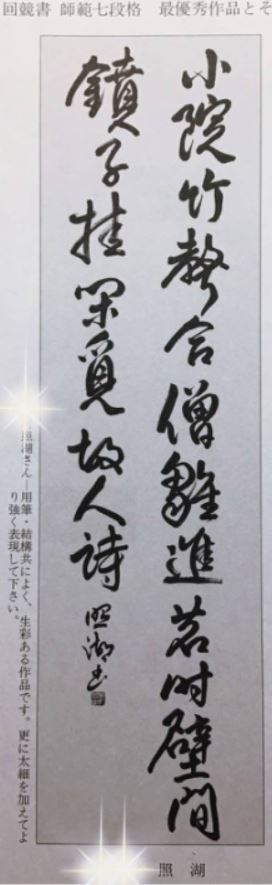 回競書 師範七段格 最優秀作品とそ
小院竹聲合僧雛進茗時壁間
子挂閑覓故人詩 照湖書
照湖さん―用筆・結構共によく、生彩ある作品です。更に太細を加えてよ
り強く表現して下さい。
照湖